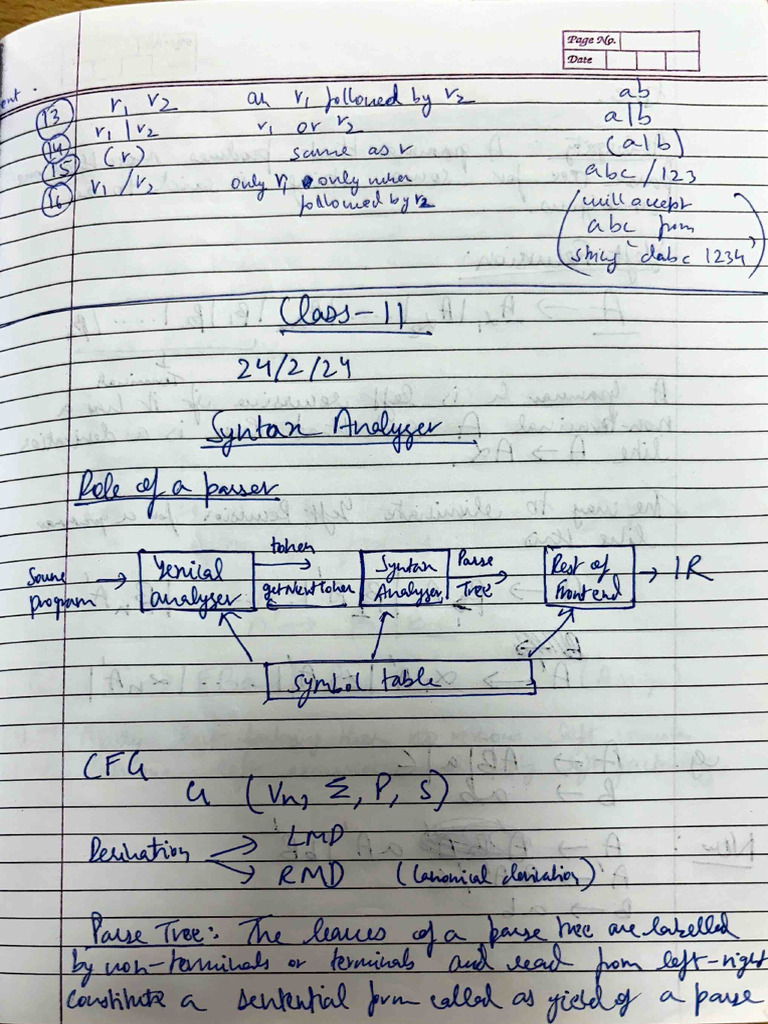 Page No.
Date
ent.
13 r1 r2 an r1 followed by r2 ab
14 r1 | r2 r1 or r2 a|b
15 (r) same as r (a|b)
16 r1 / r2 only r1 only when followed by r2 abc/123
(will accept
abc from
string 'dabc 1234')
Class-11
24/2/24
Syntax Analyzer
Role of a parser
Source program → Lexical analyser token → getNextToken Syntax Analyzer Parse Tree → Rest of frontend → IR
Symbol table
CFG
G (Vn, Σ, P, S)
Derivation → LMD
→ RMD (Canonical derivation)
Parse Tree: The leaves of a parse tree are labelled
by non-terminals or terminals and read from left-right
constitute a sentential form called as yield of a parse